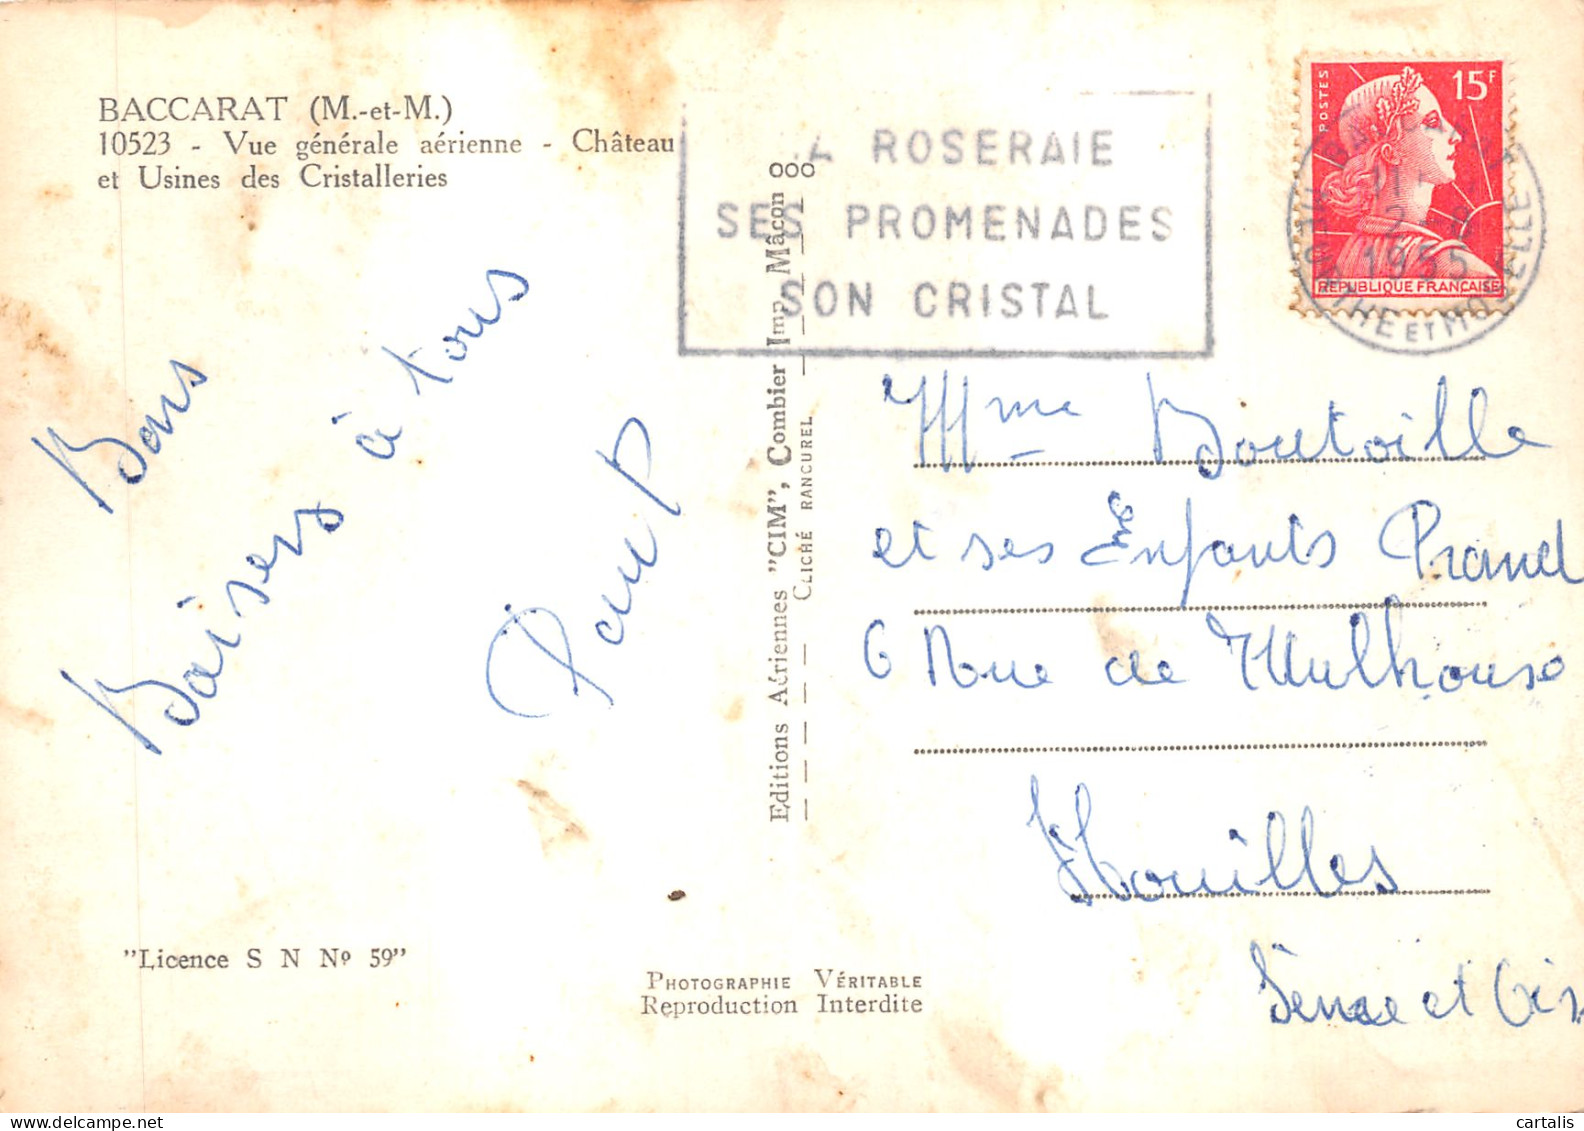 BACCARAT (M.-et-M.)
10523 - Vue générale aérienne - Château
et Usines des Cristalleries
A ROSERAIE
SES PROMENADES
SON CRISTAL
POSTES
15F
REPUBLIQUE FRANÇAISE
BACCARAT
2 - 8
1955
MEURTHE ET MOSELLE
Bons
Baisers à tous
Paul
Editions Aériennes "CIM", Combier Imp. Mâcon
CLICHÉ RANCUREL
Mme Boutoille
et ses Enfants
6 Rue de Mulhouse
Houilles
Seine et Ois
"Licence S N Nº 59"
PHOTOGRAPHIE VÉRITABLE
Reproduction Interdite
cartalis